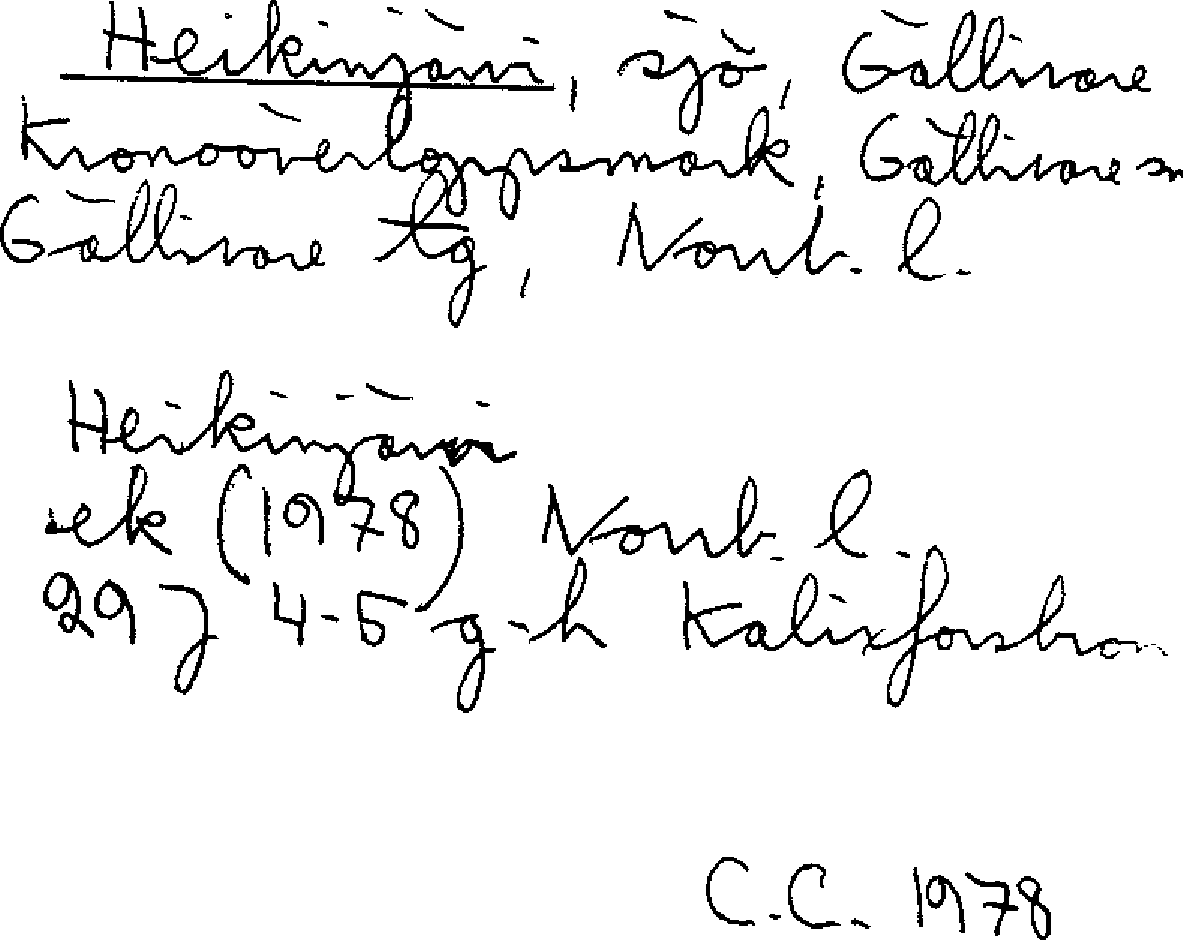 Heikinjärvi, sjö, Gällivare
Kronoöverloppsmark, Gällivare sn
Gällivare tg, Norrb. l.
Heikinjärvi
ek (1978) Norrb. l.
29 J 4-5 g-h Kalixforsbron
C.C. 1978